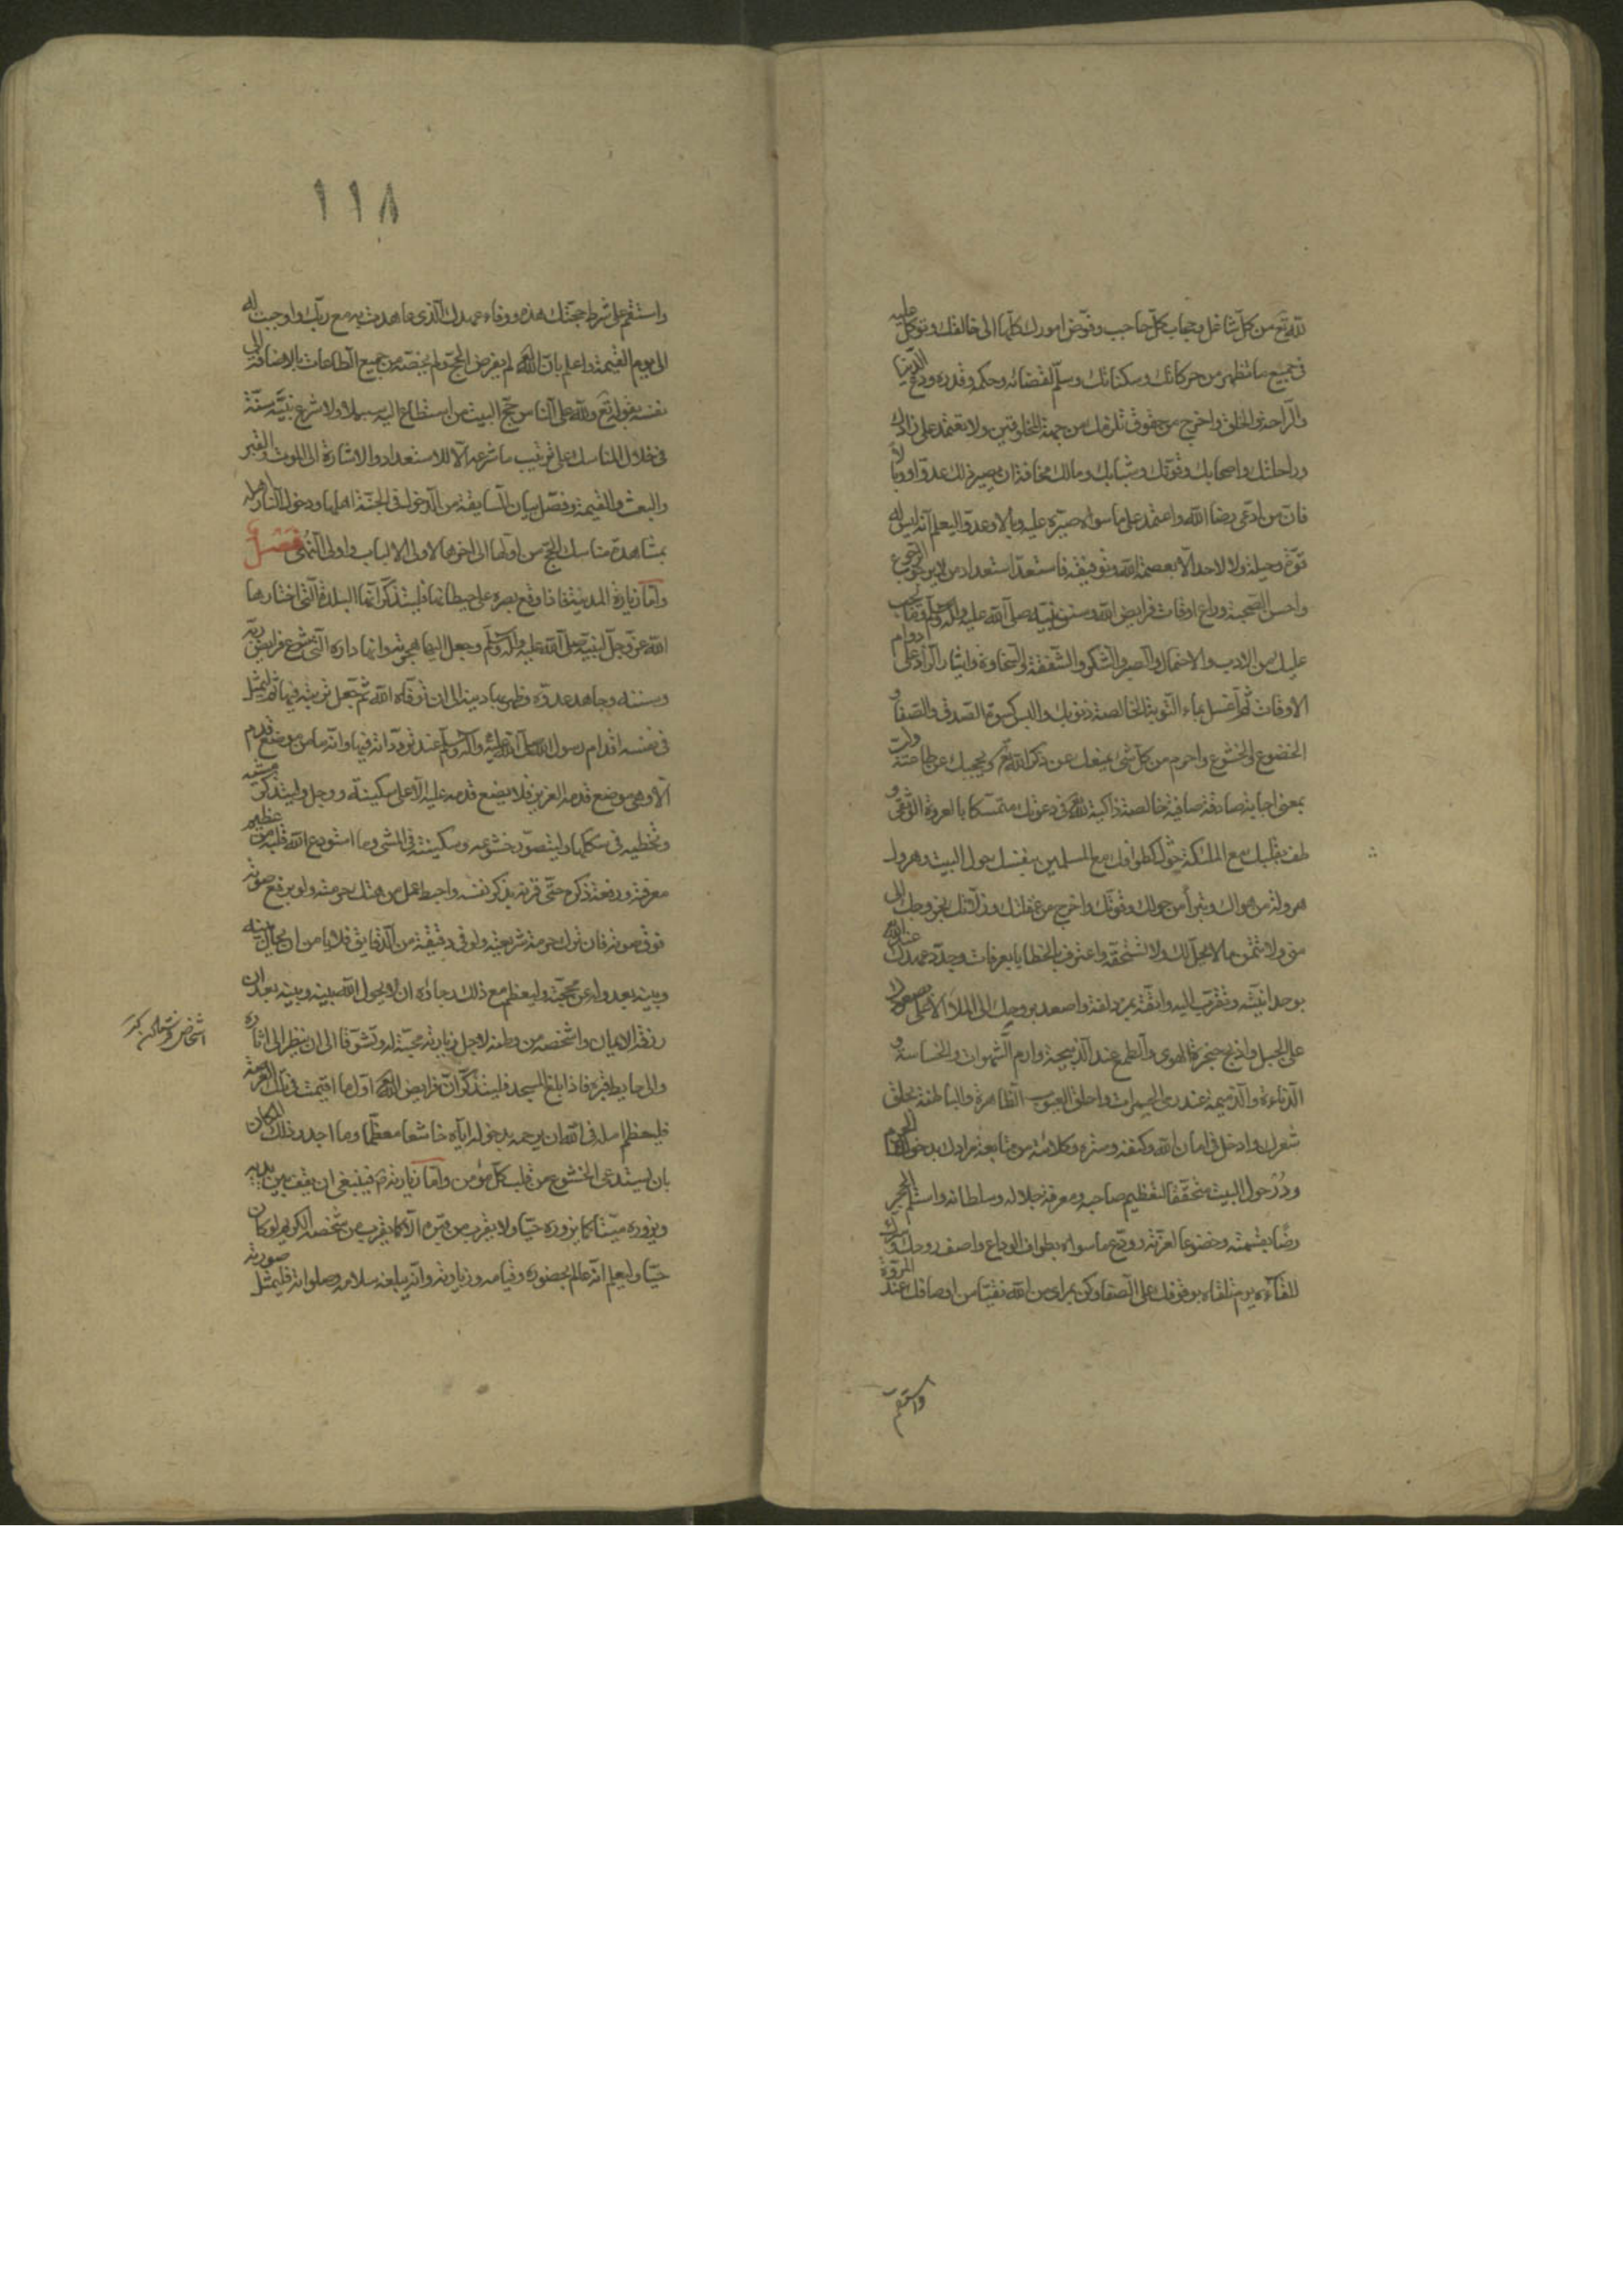 لله تع من كل شاغل وحجاب كل حاجب وفوض امورك كلها الى خالقك وتوكل عليه
فى جميع ما تظهر من حركاتك وسكناتك وسلم لقضائه وحكمه وقدره ودع الدنيا
والراحة والخلق واخرج من حقوق تلزمك من جهة المخلوقين ولا تعتمد على زادك
وراحلتك واصحابك وقوتك وشبابك ومالك مخافة ان يصير ذلك عدوا ووبالا
فان من ادعى رضا الله واعتمد على ما سواه صيره عليه وبالا وعدوا ليعلم انه ليس له
قوة وحيلة ولا لاحد الا بعصمة الله وتوفيقه فاستعد استعداد من لا يرجو الرجوع
واحسن الصحبة وراع اوقات فرايض الله وسنن نبيه صلى الله عليه وآله وسلم وما يجب
عليك من الادب والاحتمال والصبر والشكر والشفقة والسخاوة وايثار الزاد على دوام
الاوقات ثم اغسل بماء التوبة الخالصة ذنوبك والبس كسوة الصدق والصفا و
الخضوع والخشوع واحرم من كل شئ يمنعك عن ذكر الله ويحجبك عن طاعته ولب
بمعنى اجابة صادقة صافية خالصة زاكية لله فى دعوتك متمسكا بالعروة الوثقى و
طف بقلبك مع الملئكة حول العرش كطوافك مع المسلمين بنفسك حول البيت وهرول
هرولة من هواك وتبرأ من حولك وقوتك واخرج من غفلتك وزلاتك بخروجك الى
منى ولا تتمن ما لا يحل لك ولا تستحقه واعترف بالخطايا بعرفات وجدد عهدك عند الله
بوحدانيته وتقرب اليه واتقه بمزدلفة واصعد بروحك الى الملاء الاعلى بصعودك
على الجبل واذبح حنجرة الهوى والطمع عند الذبيحة وارم الشهوات والخساسة و
الدناءة والذميمة عند رمى الجمرات واحلق العيوب الظاهرة والباطنة بحلق
شعرك وادخل فى امان الله وكنفه وستره وكلائته من متابعة مرادك بدخولك الحرم
ودر حول البيت متحققا لتعظيم صاحبه ومعرفة جلاله وسلطانه واستلم الحجر
رضا بقسمته وخضوعا لعزته وودع ما سواه بطواف الوداع واصف روحك وسرك
للقائه يوم تلقاه بوقوفك على الصفا وكن بمراى من الله نقيا من اوصافك عند المروة
واستقم
١١٨
واستقم على شرط حجتك هذه ووفاء عهدك الذى عاهدت به مع ربك واوجبت له
الى يوم القيمة واعلم بان الله لم يفرض الحج ولم يخصه من جميع الطاعات بالاضافة الى
نفسه بقوله تع ولله على الناس حج البيت من استطاع اليه سبيلا ولا شرع نبيه سنة
فى خلال المناسك على ترتيب ما شرعه الا للاستعداد والاشارة الى الموت والقبر
والبعث والقيمة وفصل بيان السابقة من الدخول فى الجنة اهلها ودخول النار اهلها
بمشاهدة مناسك الحج من اولها الى اخرها لاولى الالباب واولى النهى فصل
واما زيارة المدينة فاذا وقع بصره على حيطانها فليتذكر انها البلدة التى اختارها
الله عز وجل لنبيه صلى الله عليه وآله وسلم وجعل اليها هجرته وانها داره التى شرع فرايض ربه
وسننه وجاهد عدوه وظهر بها دينه الى ان توفاه الله ثم جعل تربته فيها ثم ليمثل
فى نفسه اقدام رسول الله صلى الله عليه وآله وسلم عند تردداته فيها وانه ما من موضع قدم
الا وهى موضع قدمه العزيز فلا يضع قدمه عليه الا على سكينة ووجل وليتذكر مشيه
وتخطيه فى سككها وليتصور خشوعه وسكينته فى المشى وما استودع الله قلبه من عظيم
معرفته ورفعة ذكره حتى قرنه بذكر نفسه واحبط عمل من هتك حرمته ولو برفع صوته
فوق صوته فان ترك حرمة شريعته ولو فى دقيقة من الدقايق فلا يامن ان يحال بينه
وبينه بعدوله عن محجته وليعظم مع ذلك رجاؤه ان لا يحول الله بينه وبينه بعد ان
رزقه الايمان واشخصه من وطنه لاجل زيارته محبة له وتشوقا الى ان ينظر الى اثاره
والى حايط قبره فاذا بلغ المسجد فليتذكر ان فرايض الله اول ما اقيمت فى تلك العرصة
فليعظم امله فى الله ان يرحمه بدخوله اياه خاشعا معظما وما اجدر ذلك المكان
بان يستدعى الخشوع من قلب كل مؤمن واما زيارته ص فينبغى ان يقف بين يديه
ويزوره ميتا كما يزوره حيا ولا يقرب من قبره الا كما يقرب من شخصه الكريم لو كان
حيا وليعلم انه عالم بحضوره وقيامه وزيارته وانه يبلغه سلامه وصلواته فليمثل صورته